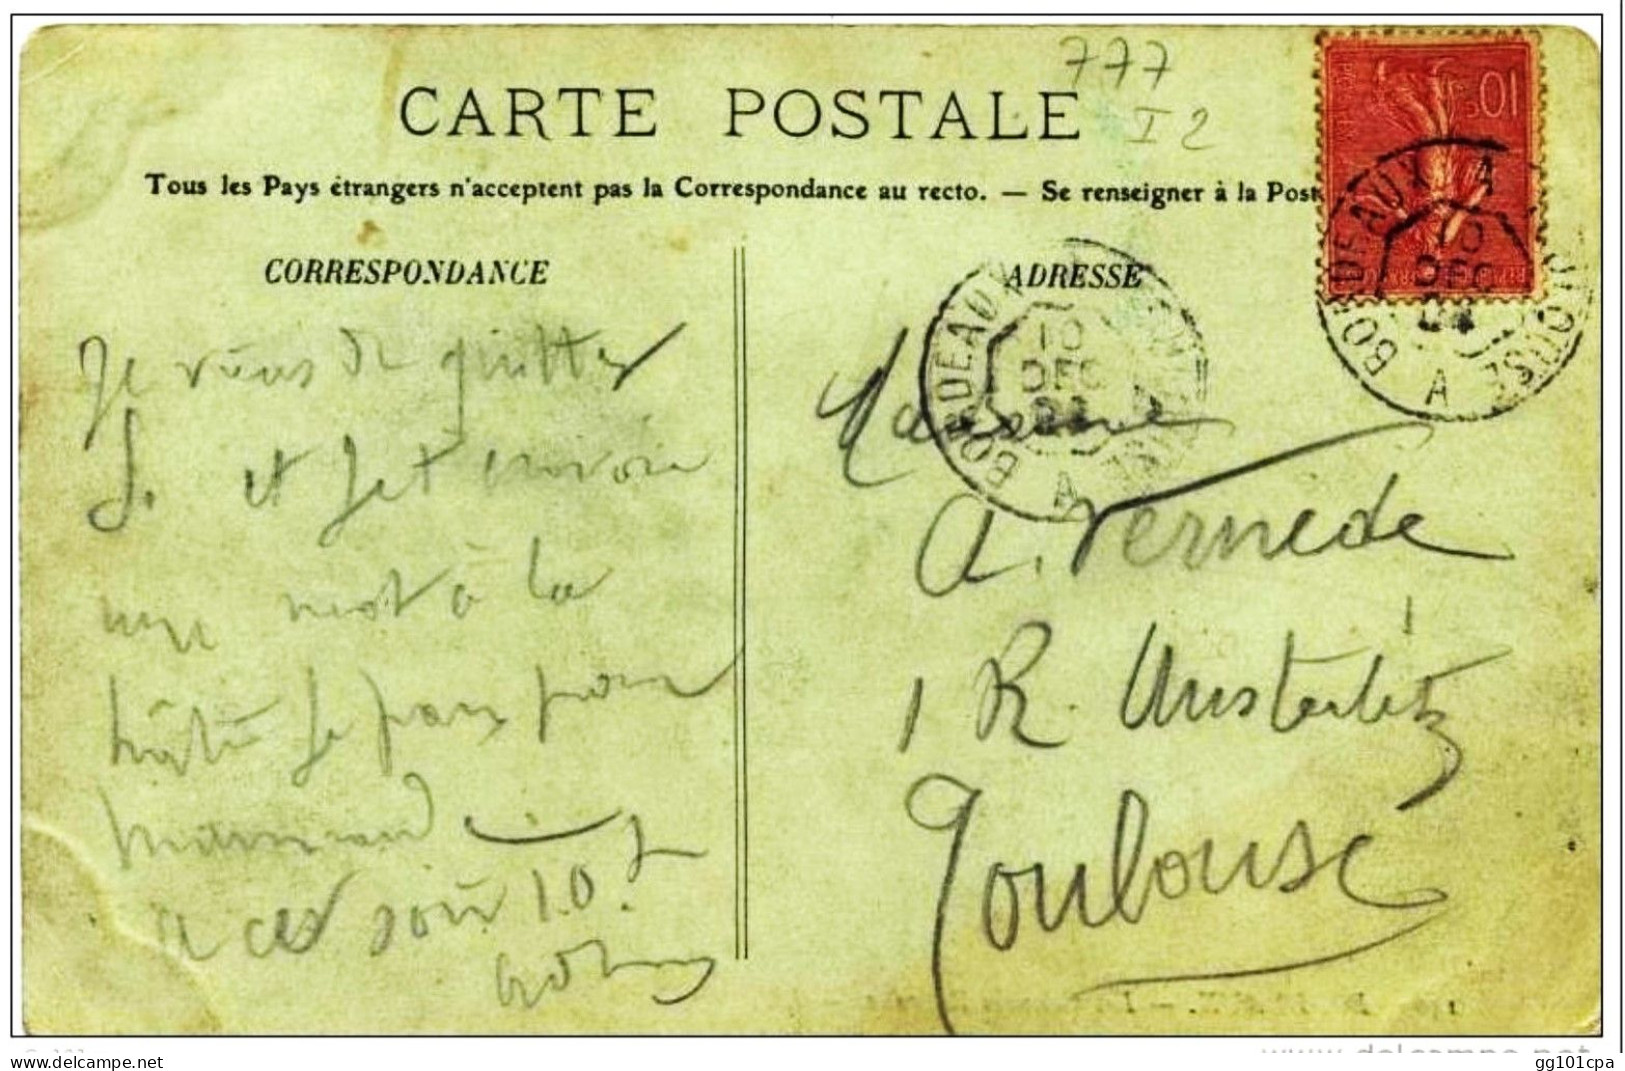 777
I 2
CARTE POSTALE
Tous les Pays étrangers n'acceptent pas la Correspondance au recto. — Se renseigner à la Post
CORRESPONDANCE
Je viens de quitter
S. et je t envoie
un mot à la
hâte je pars pour
Marmand
a ce soir 10
ADRESSE
Madame
A. Vernede
1 R. Austerlitz
Toulouse
10c
BORDEAUX A TOULOUSE
10
DEC
A
BORDEAUX
10
DEC
A
www.delcampe.net
gg101cpa